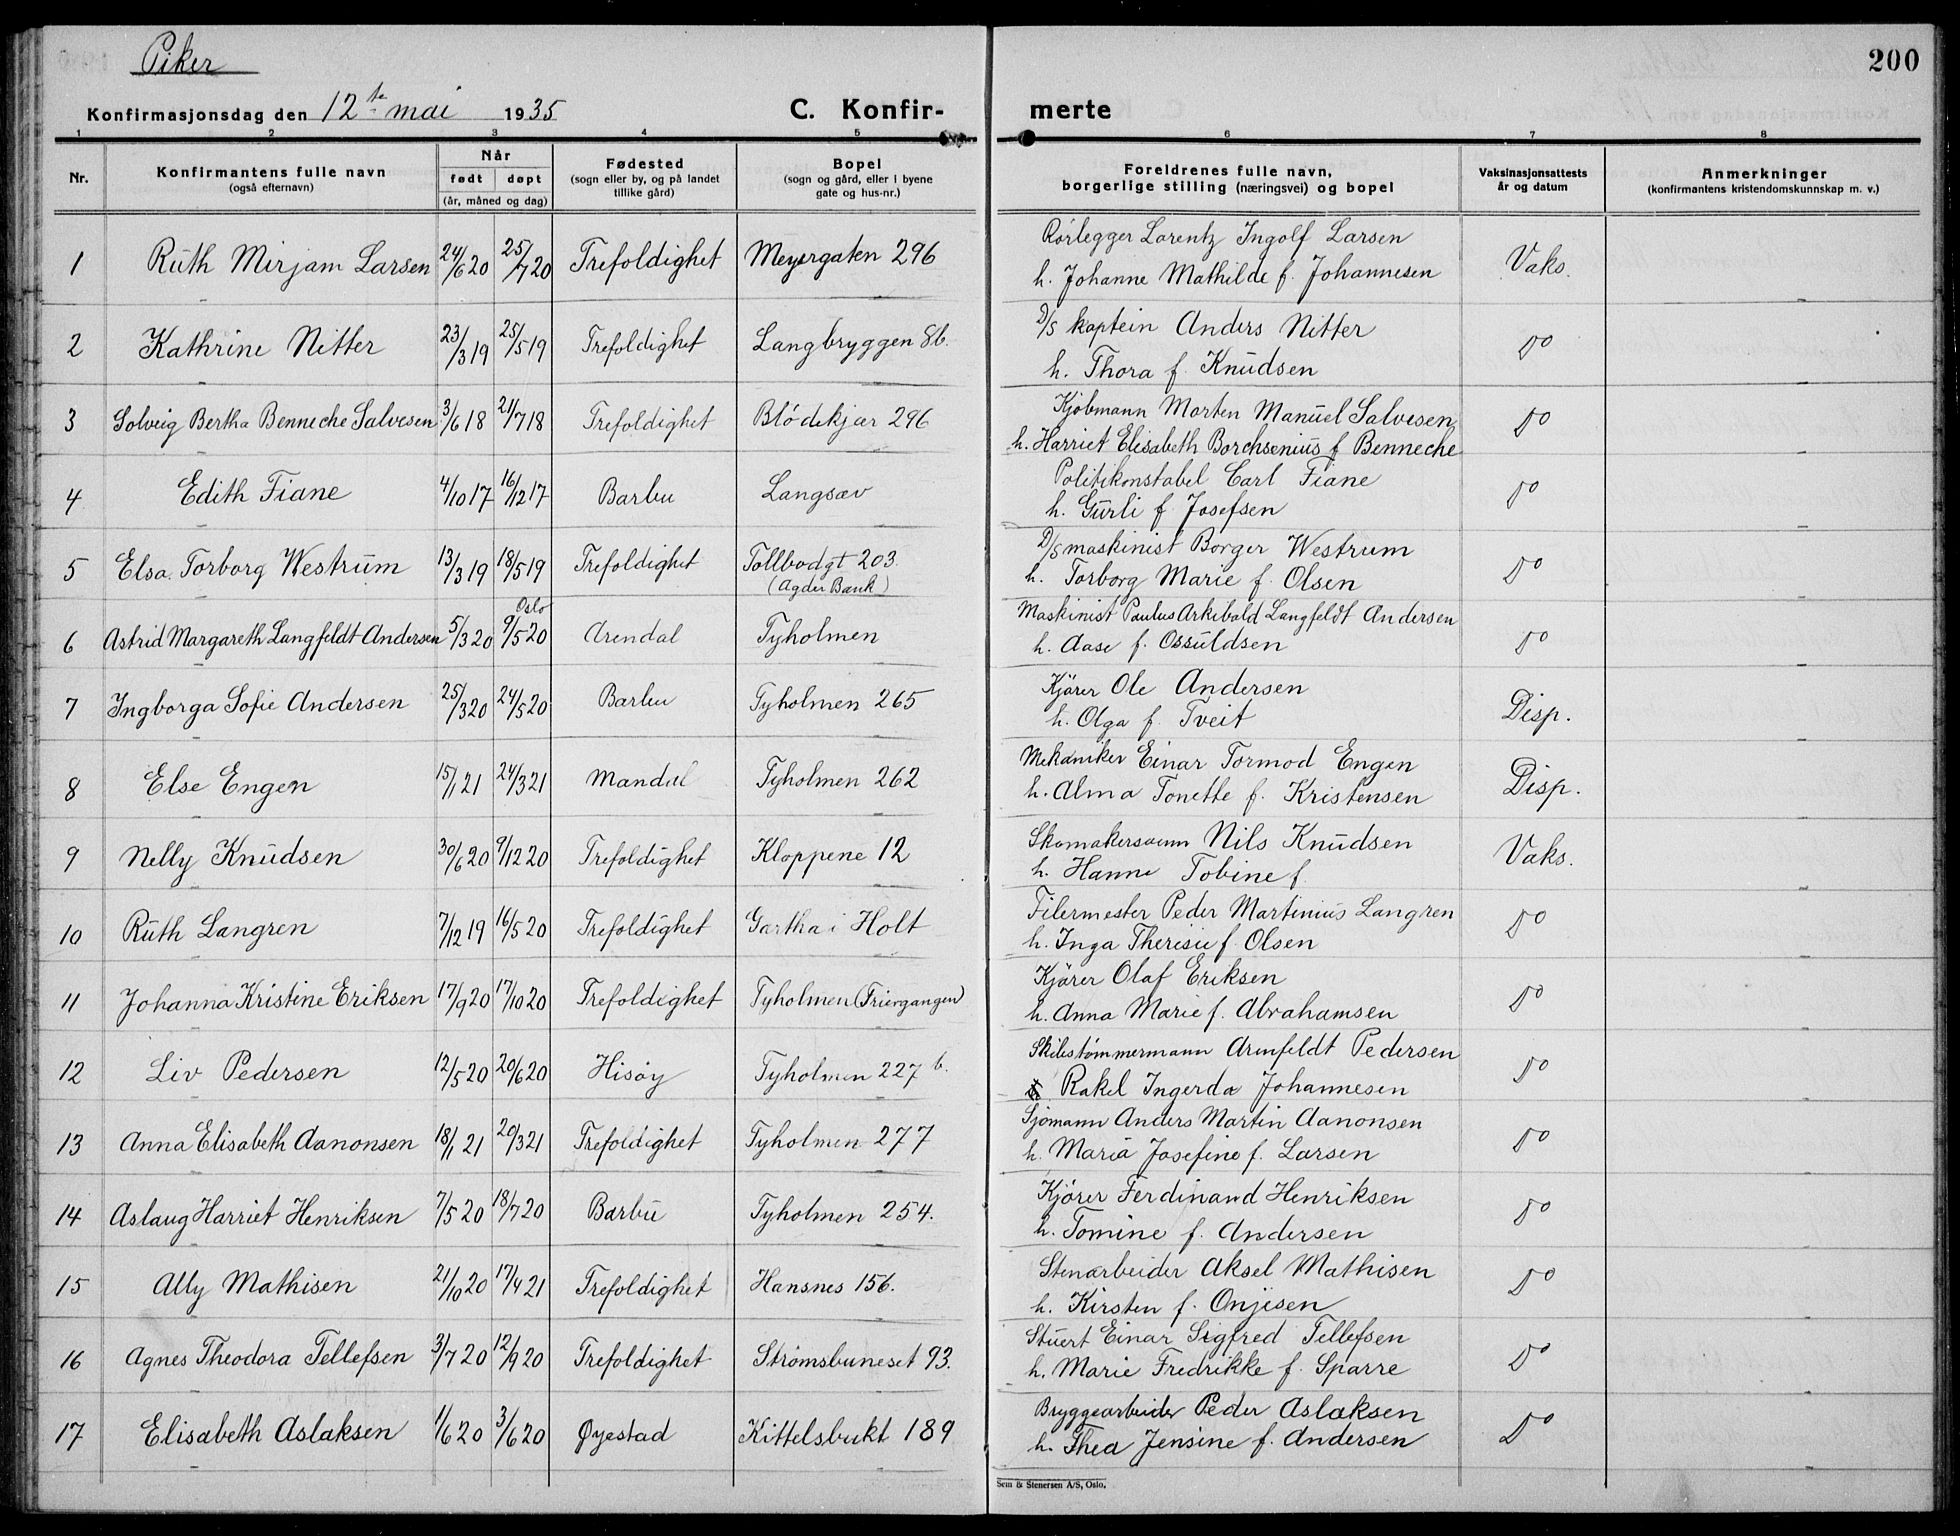 Piker
200
Konfirmasjonsdag den 12te mai 1935 C. Konfirmerte
1 2 3 4 5 6 7 8
Nr. Konfirmantens fulle navn (også efternavn) Når født døpt (år, måned og dag) Fødested (sogn eller by, og på landet tillike gård) Bopel (sogn og gård, eller i byene gate og hus-nr.) Foreldrenes fulle navn, borgerlige stilling (næringsvei) og bopel Vaksinasjonsattests år og datum Anmerkninger (konfirmantens kristendomskunnskap m. v.)
1 Ruth Mirjam Larsen 24/6 20 25/7 20 Trefoldighet Meyergaten 296 Rørlegger Lorentz Ingolf Larsen Vaks.
h. Johanne Mathilde f. Johannesen
2 Kathrine Nitter 23/3 19 25/5 19 Trefoldighet Langbryggen 8b. D/S kaptein Anders Nitter Do
h. Thora f. Knudsen
3 Solveig Bertha Benneche Salvesen 3/6 18 21/7 18 Trefoldighet Blödekjær 296 Kjöbmann Morten Manuel Salvesen Do
h. Harriet Elisabeth Borchsenius f Benneche
4 Edith Fiane 4/10 17 16/12 17 Barbu Langsæv Politikonstabel Carl Fiane Do
h. Gurli f. Josefsen
5 Elsa Torborg Westrum 13/3 19 18/5 19 Trefoldighet Tollbodgt 203. (Agder Bank) D/S maskinist Borger Westrum Do
h. Torborg Marie f. Olsen
6 Astrid Margareth Langfeldt Andersen 5/3 20 Oslo 9/5 20 Arendal Tyholmen Maskinist Paulus Arkibald Langfeldt Andersen Do
h. Aase f. Ossuldsen
7 Ingborga Sofie Andersen 25/3 20 24/5 20 Barbu Tyholmen 265 Kjörer Ole Andersen Disp.
h. Olga f. Tveit
8 Else Engen 15/1 21 24/3 21 Mandal Tyholmen 262 Mekaniker Einar Tormod Engen Disp.
h. Alma Tonette f. Kristensen
9 Nelly Knudsen 30/6 20 9/12 20 Trefoldighet Kloppene 12 Skomakersvenn Nils Knudsen Vaks.
h. Hanna Tobine f.
10 Ruth Langren 7/12 19 16/5 20 Trefoldighet Gartha i Holt Filermester Peder Martinius Langren Do
h. Inga Therisie f. Olsen
11 Johanna Kristine Eriksen 17/9 20 17/10 20 Trefoldighet Tyholmen (Friergangen) Kjörer Olaf Eriksen Do
h. Anna Marie f. Abrahamsen
12 Liv Pedersen 12/5 20 20/6 20 Hisøy Tyholmen 227 b. Skibstømmermann Arnfeldt Pedersen Do
Rakel Ingerda Johannesen
13 Anna Elisabeth Aanonsen 18/1 21 20/3 21 Trefoldighet Tyholmen 277 Sjömann Anders Martin Aanonsen Do
h. Maria Josefine f. Larsen
14 Aslaug Harriet Henriksen 7/5 20 18/7 20 Barbu Tyholmen 254. Kjörer Ferdinand Henriksen Do
h. Tomine f. Andersen
15 Ally Mathisen 21/10 20 17/4 21 Trefoldighet Hansnes 156. Stenarbeider Aksel Mathisen Do
h. Kirsten f. Onjesen
16 Agnes Theodora Tellefsen 3/7 20 12/9 20 Trefoldighet Strømsbuneset 93. Stuert Einar Sigfred Tellefsen Do
h. Marie Fredrikke f. Sparre
17 Elisabeth Aslaksen 1/6 20 3/6 20 Øyestad Kittelsbukt 189 Bryggearbeider Peder Aslaksen Do
h. Thea Jensine f. Andersen
Sem & Stenersen A/S, Oslo.